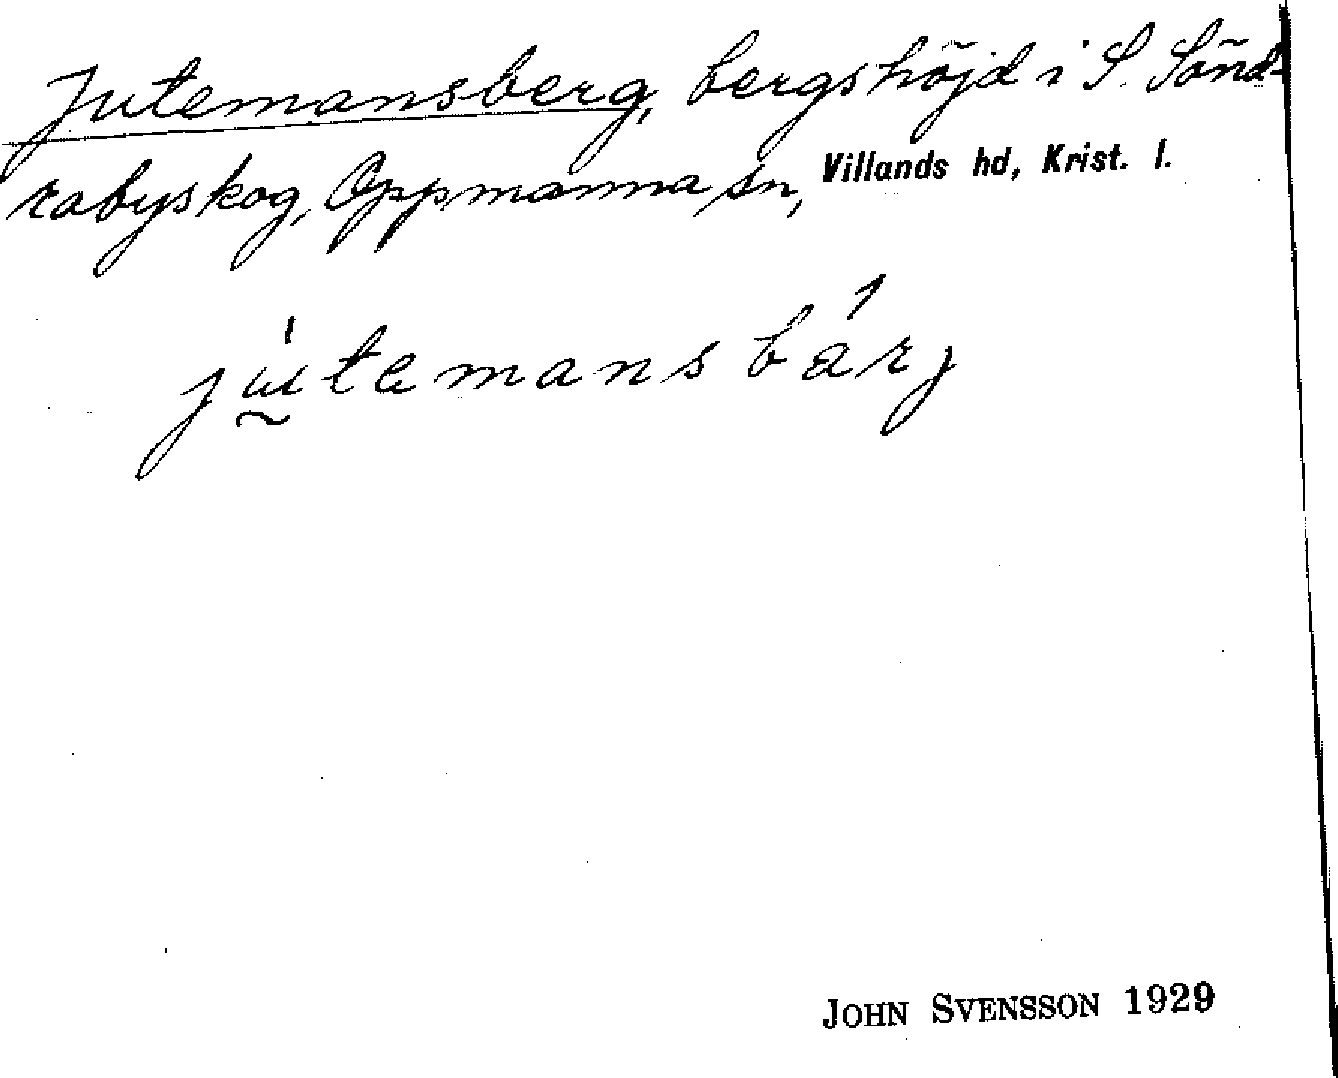 Jutemansberg, bergshöjd i S. Sönd-
rabyskog, Oppmanna sn, Villands hd, Krist. l.
jutemansbärj
JOHN SVENSSON 1929